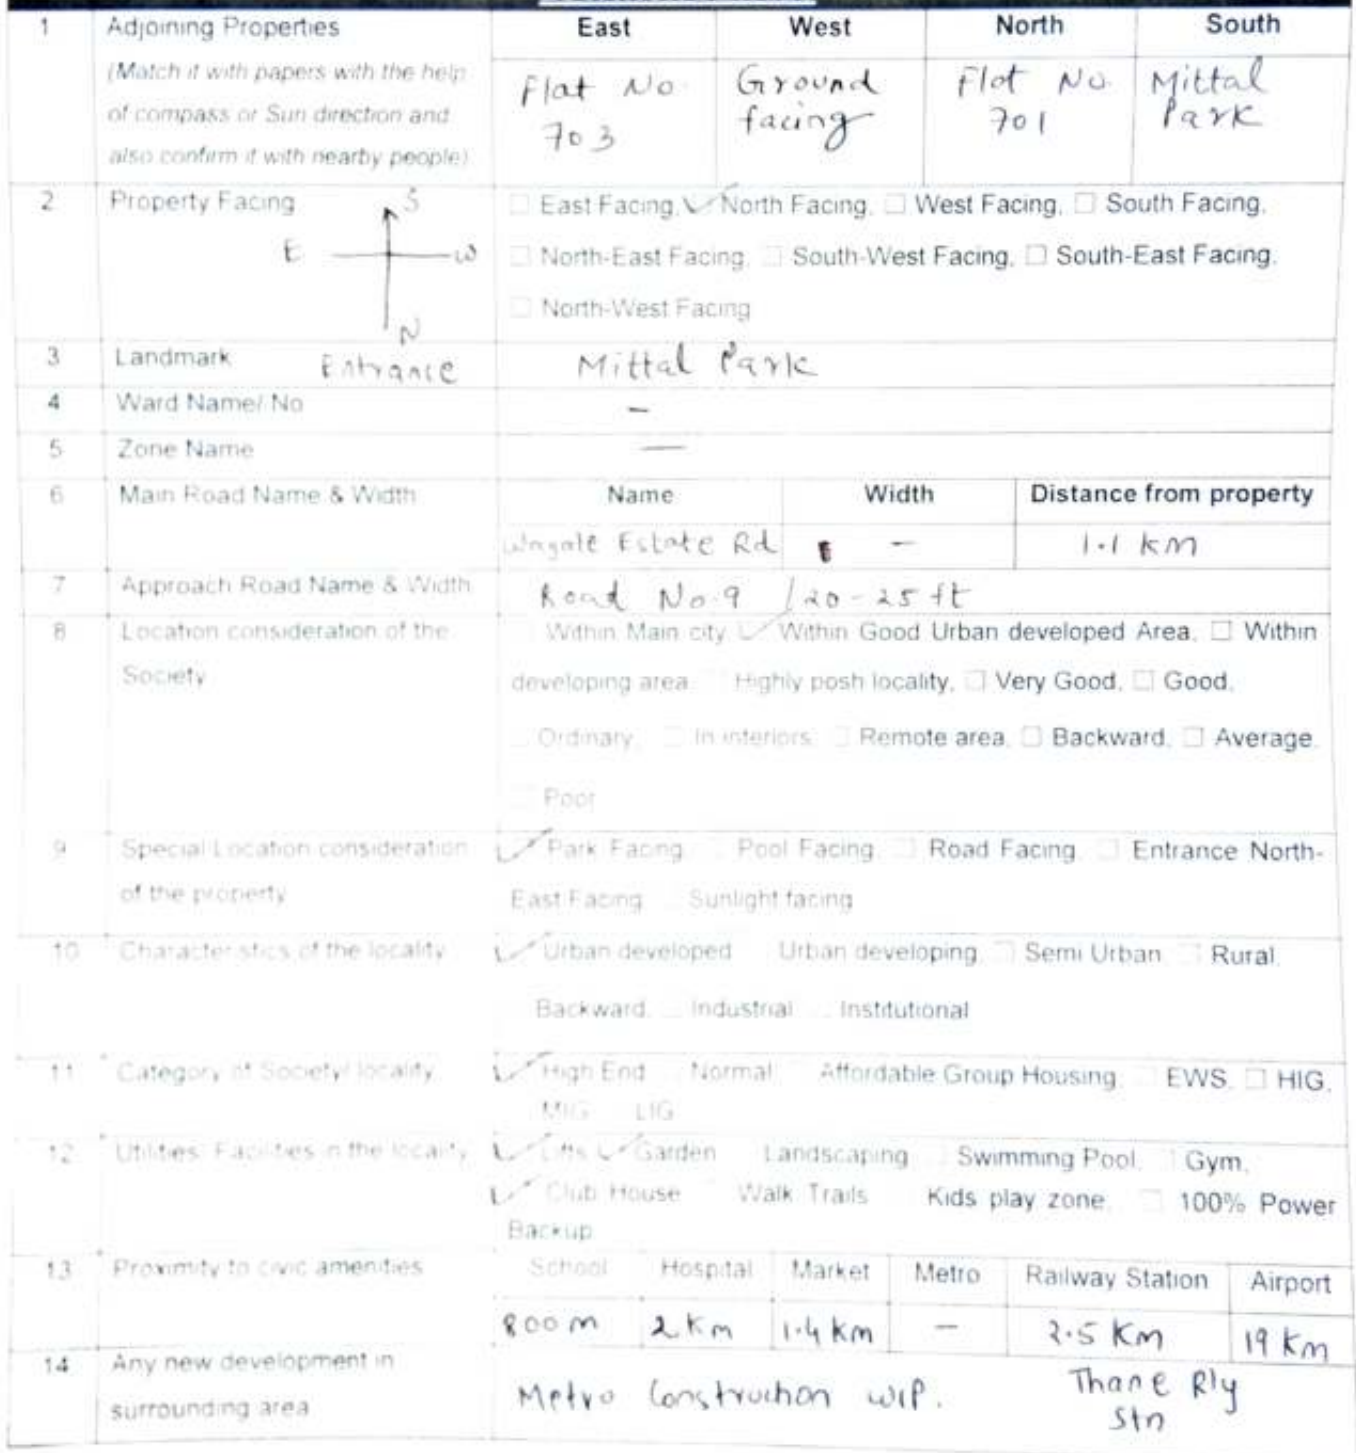 1 Adjoining Properties East West North South
(Match it with papers with the help
of compass or Sun direction and
also confirm it with nearby people)
Flat No.
703
Ground
facing
Flat No.
701
Mittal
Park
2 Property Facing
S
E W
N
Entrance
East Facing, North Facing, West Facing, South Facing,
North-East Facing, South-West Facing, South-East Facing,
North-West Facing
3 Landmark Mittal Park
4 Ward Name/ No -
5 Zone Name —
6 Main Road Name & Width Name Width Distance from property
Wagale Estate Rd - 1.1 km
7 Approach Road Name & Width Road No.9 / 20-25 ft
8 Location consideration of the
Society
Within Main city Within Good Urban developed Area, Within
developing area Highly posh locality, Very Good, Good,
Ordinary, In interiors Remote area, Backward, Average,
Poor
9 Special Location consideration
of the property
Park Facing Pool Facing, Road Facing, Entrance North-
East Facing Sunlight facing
10 Characteristics of the locality
Urban developed Urban developing, Semi Urban Rural,
Backward, Industrial Institutional
11 Category of Society/ locality
High End Normal Affordable Group Housing, EWS, HIG,
MIG LIG
12 Utilities/ Facilities in the locality
Lifts Garden Landscaping Swimming Pool, Gym,
Club House Walk Trails Kids play zone, 100% Power
Backup
13 Proximity to civic amenities School Hospital Market Metro Railway Station Airport
800 m 2 Km 1.4 km - Km 19 Km
14 Any new development in
surrounding area
Metro Construction WIP.
Thane Rly
Stn